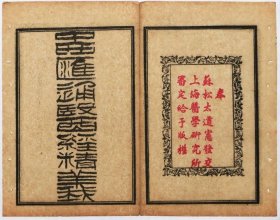 奉
蘇松太道憲發交
上海醫學研究所
審定給予版權
中西匯通醫經精義